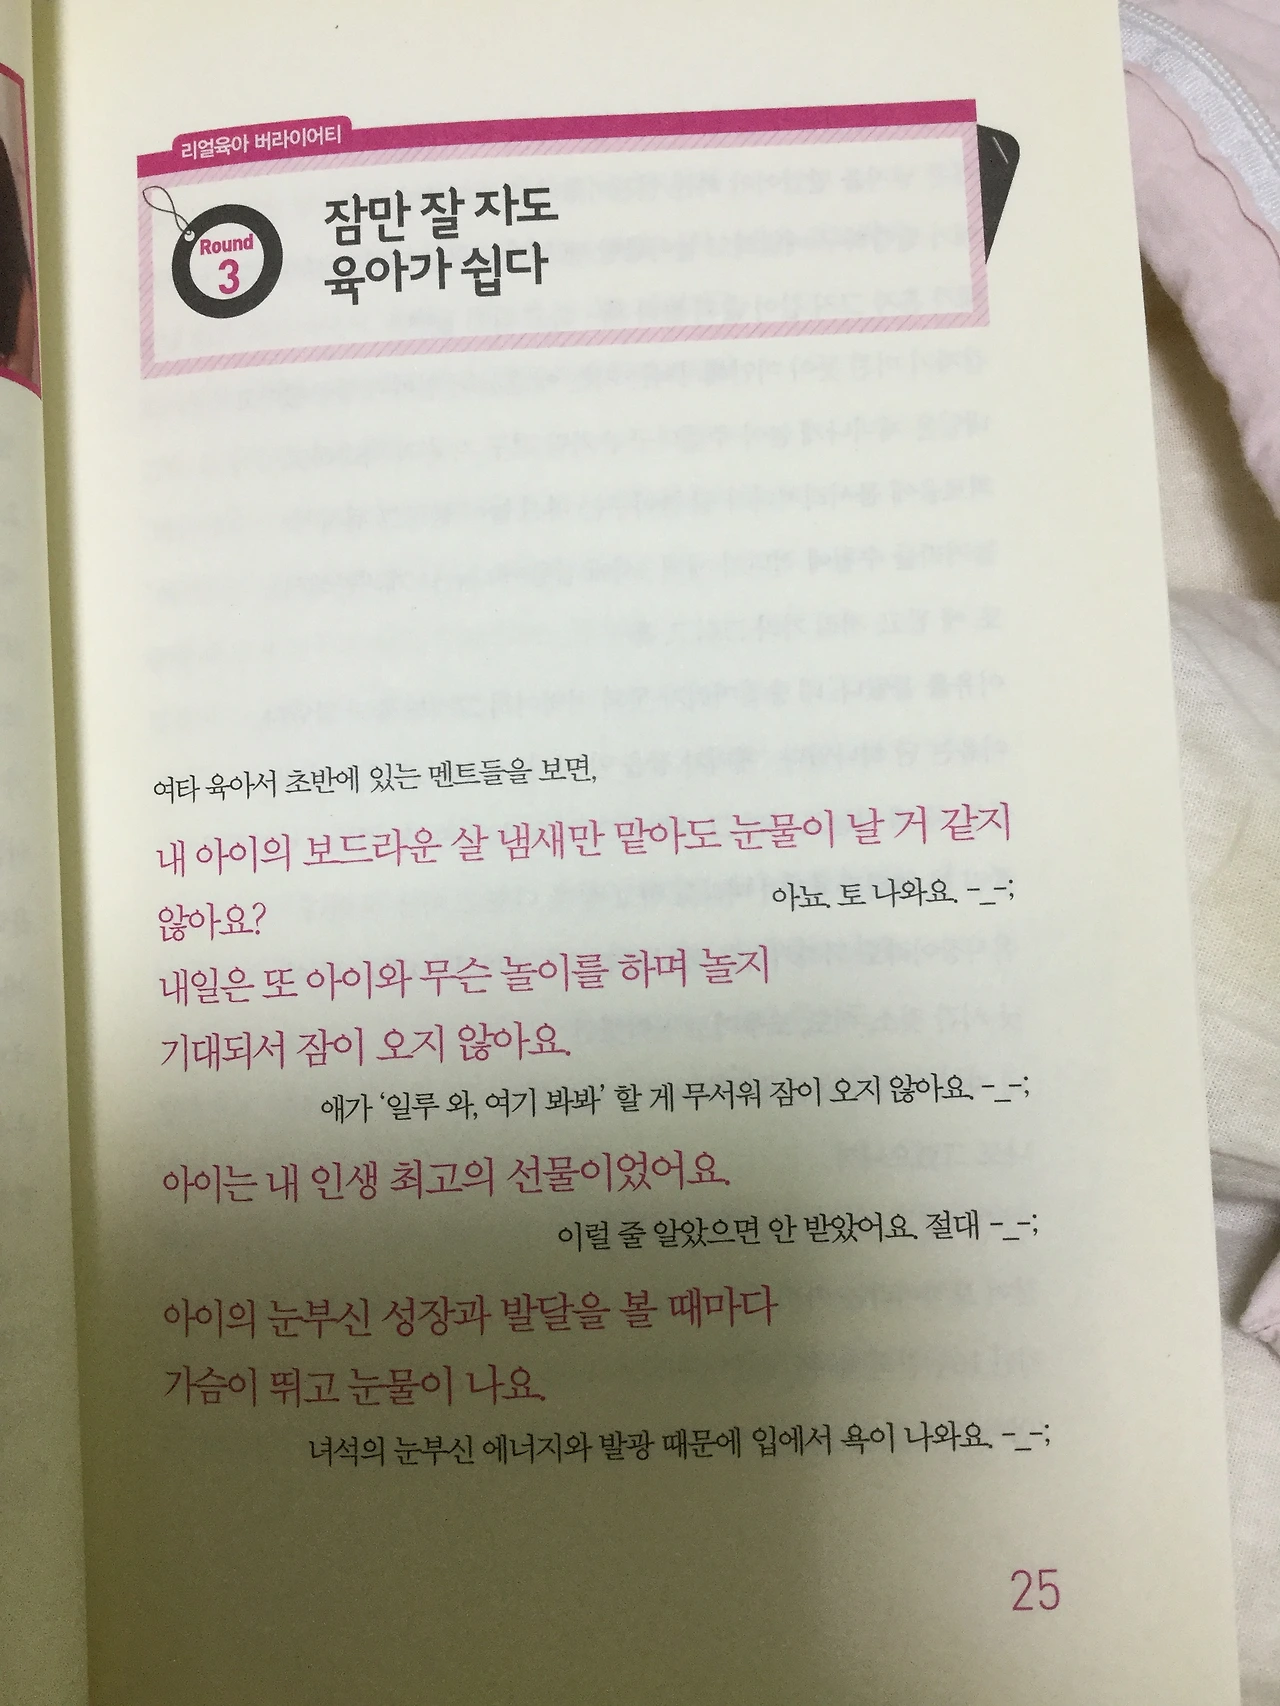 리얼육아 버라이어티
Round
3
잠만 잘 자도
육아가 쉽다
여타 육아서 초반에 있는 멘트들을 보면,
내 아이의 보드라운 살 냄새만 맡아도 눈물이 날 거 같지
않아요?
아뇨. 토 나와요. -_-;
내일은 또 아이와 무슨 놀이를 하며 놀지
기대되서 잠이 오지 않아요.
애가 ‘일루 와, 여기 봐봐’ 할 게 무서워 잠이 오지 않아요. -_-;
아이는 내 인생 최고의 선물이었어요.
이럴 줄 알았으면 안 받았어요. 절대 -_-;
아이의 눈부신 성장과 발달을 볼 때마다
가슴이 뛰고 눈물이 나요.
녀석의 눈부신 에너지와 발광 때문에 입에서 욕이 나와요. -_-;
25